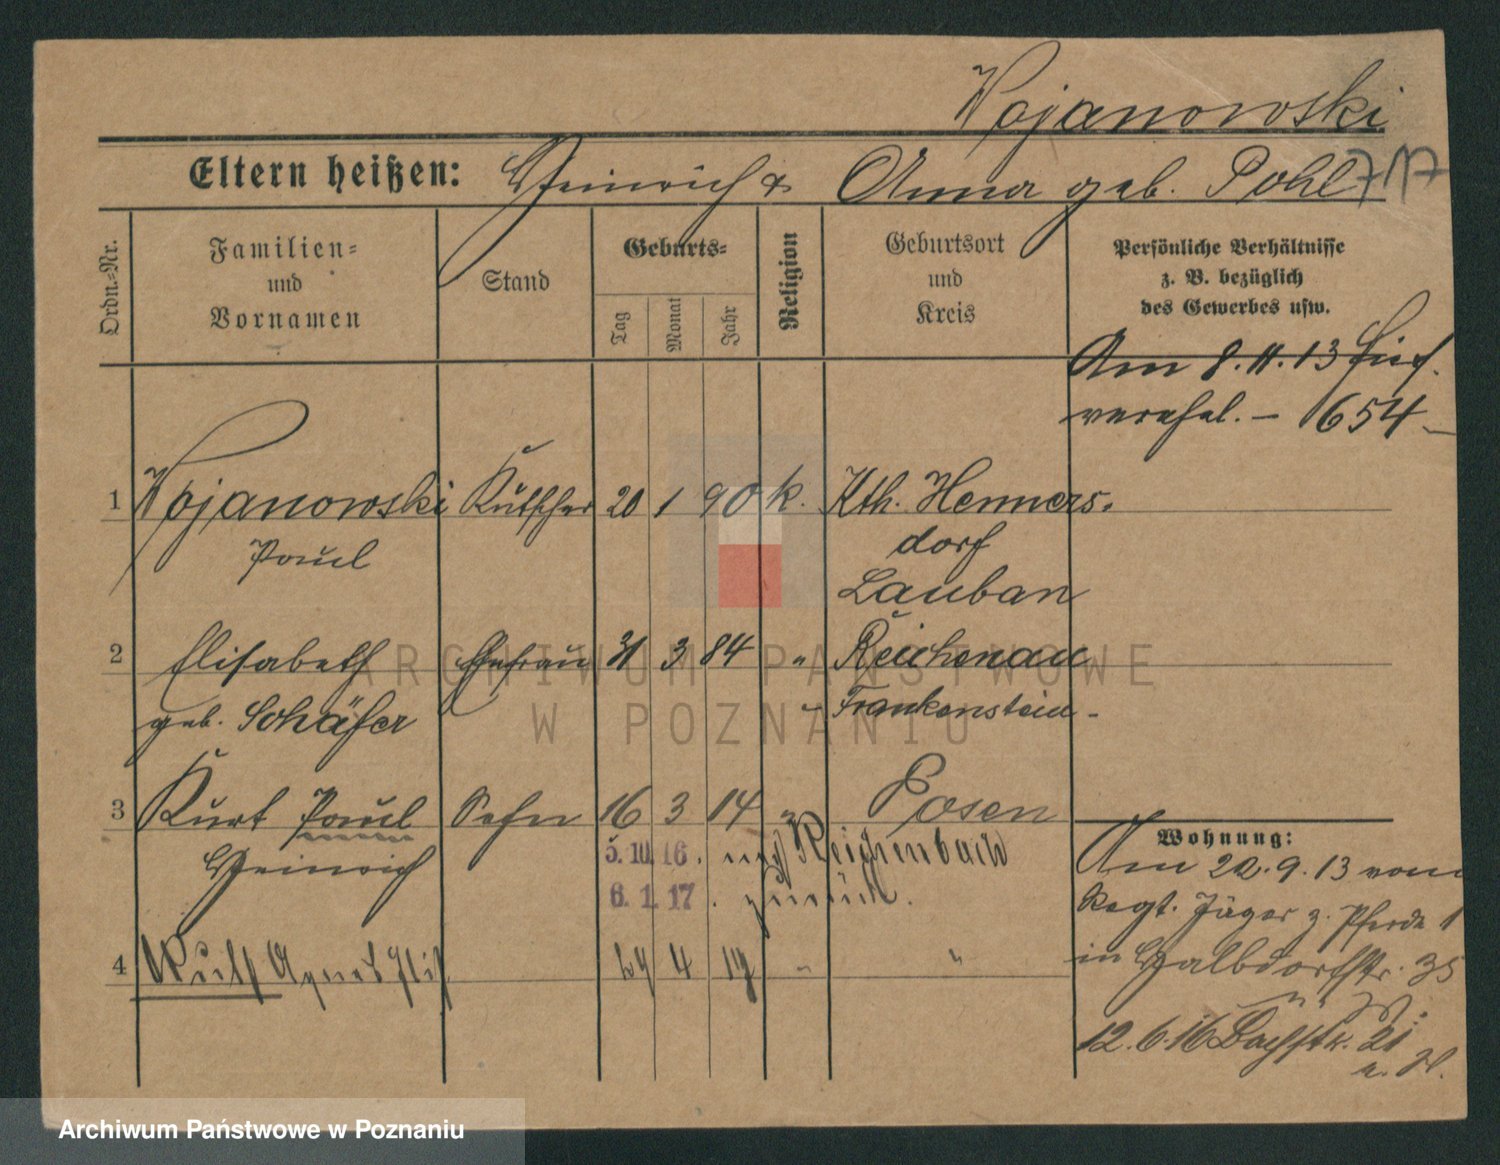 Wojanowski
Eltern heißen: Heinrich & Anna geb. Pohl 717
Ordn.-Nr.
Familien-
und
Vornamen
Stand
Geburts-
Tag
Monat
Jahr
Religion
Geburtsort
und
Kreis
Persönliche Verhältnisse
z. B. bezüglich
des Gewerbes usw.
Am 8.11.13 hier
verehel. – 654 –
1 Wojanowski Kutscher 20 1 90 k. Kth. Henners-
Paul dorf
Lauban
2 Elisabeth Ehefrau 31 3 84 " Reichenau
geb. Schäfer " Frankenstein -
3 Kurt Paul Sohn 16 3 14 " Posen
Heinrich
5.10.16. nach Reichenbach
6.1.17. zurück.
4 Agnes 4 " "
Wohnung:
Am 22.9.13 vom
Regt. Jäger z. Pferde 1
in Halbdorfstr. 35
12.6.16 21
ARCHIWUM PAŃSTWOWE
W POZNANIU
Archiwum Państwowe w Poznaniu